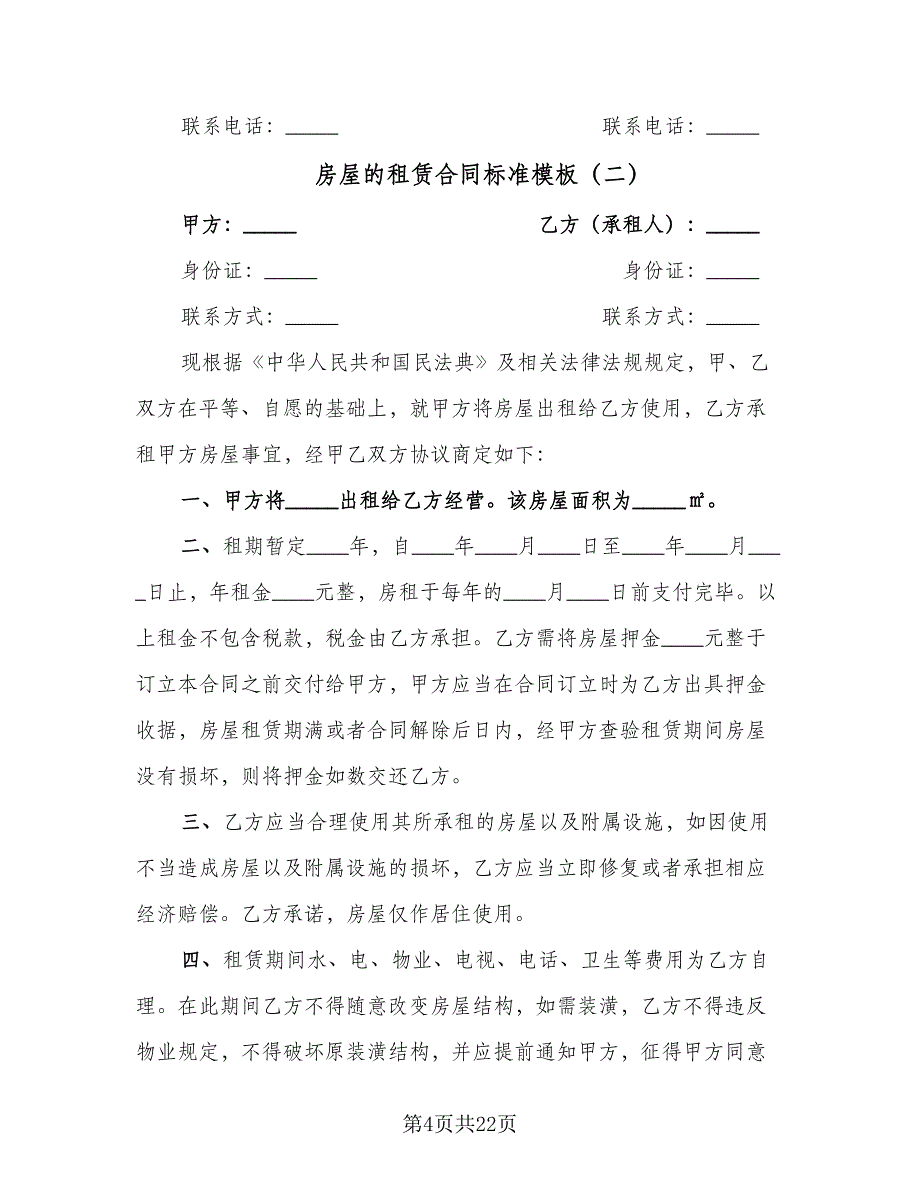 联系电话：_____ 联系电话：_____
房屋的租赁合同标准模板（二）
甲方：_____ 乙方（承租人）：_____
身份证：_____ 身份证：_____
联系方式：_____ 联系方式：_____
现根据《中华人民共和国民法典》及相关法律法规规定，甲、乙
双方在平等、自愿的基础上，就甲方将房屋出租给乙方使用，乙方承
租甲方房屋事宜，经甲乙双方协议商定如下：
一、甲方将_____出租给乙方经营。该房屋面积为_____㎡。
二、租期暂定____年，自____年____月____日至____年____月___
_日止，年租金____元整，房租于每年的____月____日前支付完毕。以
上租金不包含税款，税金由乙方承担。乙方需将房屋押金____元整于
订立本合同之前交付给甲方，甲方应当在合同订立时为乙方出具押金
收据，房屋租赁期满或者合同解除后日内，经甲方查验租赁期间房屋
没有损坏，则将押金如数交还乙方。
三、乙方应当合理使用其所承租的房屋以及附属设施，如因使用
不当造成房屋以及附属设施的损坏，乙方应当立即修复或者承担相应
经济赔偿。乙方承诺，房屋仅作居住使用。
四、租赁期间水、电、物业、电视、电话、卫生等费用为乙方自
理。在此期间乙方不得随意改变房屋结构，如需装潢，乙方不得违反
物业规定，不得破坏原装潢结构，并应提前通知甲方，征得甲方同意
第4页共22页